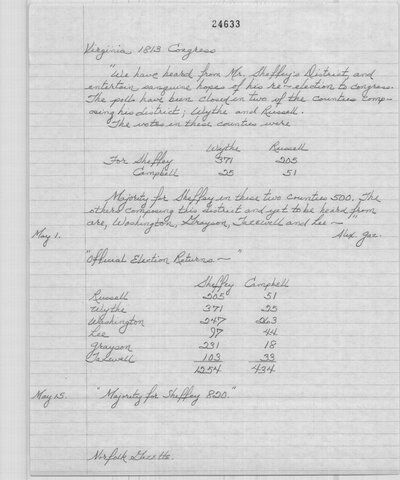 24633
Virginia 1813 Congress
"We have heard from Mr. Sheffey's District, and
entertain sanguine hopes of his re-election to congress.
The polls have been closed in two of the counties comp-
osing his district; Wythe and Russell.
The votes in these counties were
Wythe Russell
For Sheffey 371 205
Campbell 25 51
Majority for Sheffey in these two counties 500. The
others composing this district and yet to be heard from
are, Washington, Grayson, Tazewell and Lee —"
May 1. Alex. Gaz.
"Official Election Returns. — "
Sheffey Campbell
Russell 205 51
Wythe 371 25
Washington 247 263
Lee 97 44
Grayson 231 18
Tazewell 103 33
1254 434
May 15. "Majority for Sheffey 820."
Norfolk Gazette.